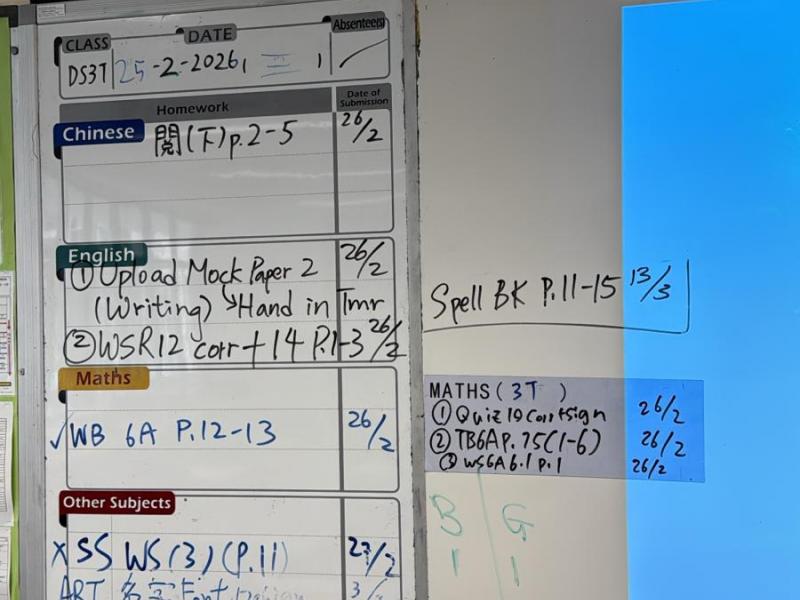 CLASS
DATE
Absentees
DS3T 25-2-2026, 三,
Homework
Date of Submission
Chinese
閱(下)p.2-5 26/2
English
① Upload Mock Paper 2 26/2
(Writing) ↳Hand in Tmr
② WSR12 corr + 14 P.1-3 26/2
Maths
✓WB 6A P.12-13 26/2
Other Subjects
X SS WS(3)(P.11) 27/2
ART 名字Font
Spell BK P.11-15 13/3
MATHS(3T)
① Quiz 19 corr+sign 26/2
② TB6A p.75(1-6) 26/2
③ WS6A 6.1 p.1 26/2
B G
1 1